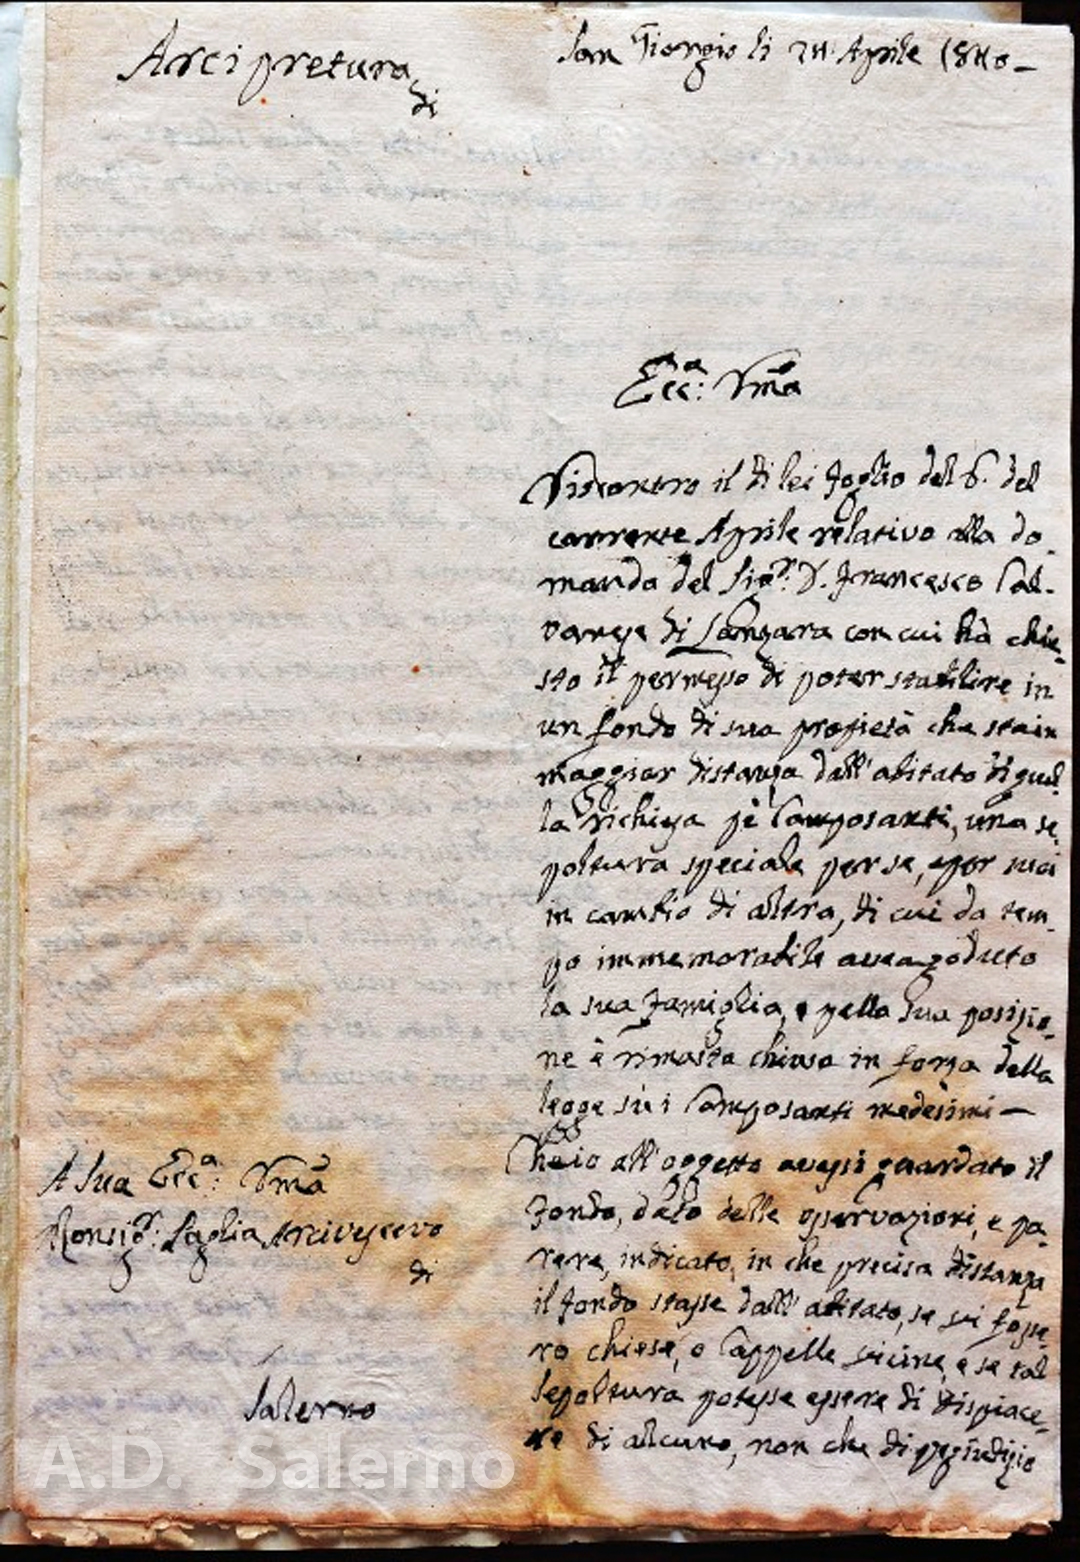 Arcipretura
di
San Giorgio li 24 Aprile 1840 –
Ecc.a Rma
Riscontro il di lei foglio del 6. del
corrente Aprile relativo alla do-
manda del Sig.r D. Francesco Cal-
varese di Lanzara con cui hà chie-
sto il permesso di poter stabilire in
un fondo di sua propietà che sta in
maggior distanza dall'abitato di quel
la richiesa pè Camposanti, una se
poltura speciale per se, e per suoi
in cambio di altra, di cui da tem-
po immemorabile avea goduto
la sua famiglia, e pella sua posizio-
ne è rimasta chiusa in forza della
legge sù i Camposanti medesimi –
Che io all'oggetto avessi guardato il
fondo, dato delle osservazioni, e pa-
rere, indicato, in che precisa distanza
il fondo stasse dall'abitato, se vi fosse-
ro chiese, o Cappelle vicine, e se tal
sepoltura potesse essere di dispiace-
re di alcuno, non che di pregiudizio
A Sua Ecc.a Rma
Monsig.r Paglia Arcivescovo
di
Salerno
A.D. Salerno